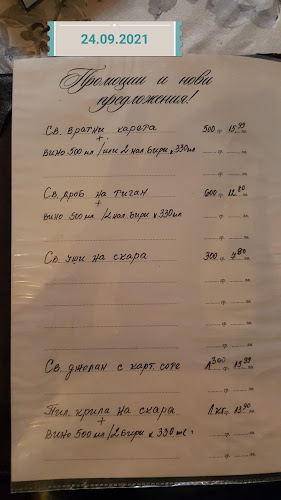 24.09.2021
Промоции и нови
предложения!
Св. вратни карета 500 гр. 15,99 лв.
+
вино 500 мл /или 2 нал. бири х 330 мл
Св. дроб на тиган 600 гр. 12,80 лв.
+
вино 500 мл /2 нал. бири х 330 мл
Св. уши на скара 300 гр. 4,80 лв.
Св. джолан с карт. соте 1300 гр. 19,99 лв.
Пил. крила на скара 1 кг. 13,90 лв.
+
вино 500 мл /2 бири х 330 мл